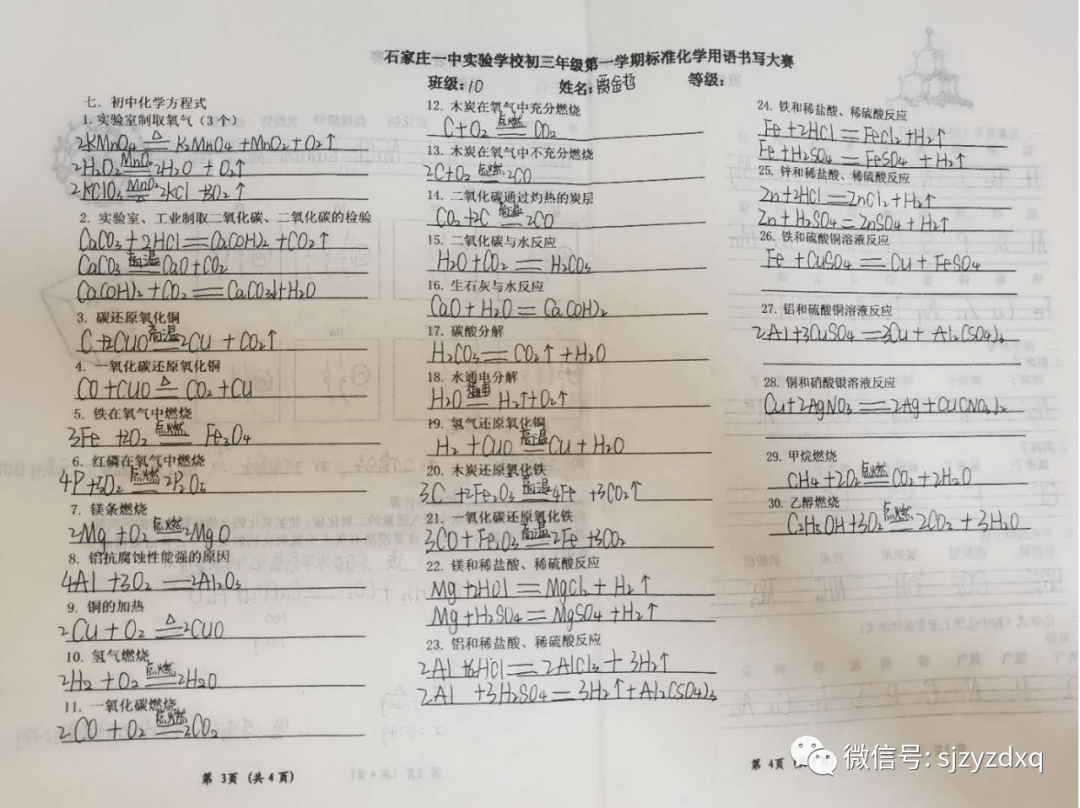 石家庄一中实验学校初三年级第一学期标准化学用语书写大赛
班级:10 姓名:贾金哲 等级:
七.初中化学方程式
1.实验室制取氧气(3个)
2KMnO4 =△= K2MnO4 +MnO2+O2↑
2H2O2 =MnO2= 2H2O + O2↑
2KClO3 =MnO2 △= 2KCl +3O2↑
2. 实验室、工业制取二氧化碳、二氧化碳的检验
CaCO3 + 2HCl == Ca(OH)2 +CO2↑
CaCO3 =高温= CaO+CO2
Ca(OH)2 + CO2 == CaCO3↓+H2O
3. 碳还原氧化铜
C+2CuO =高温= 2Cu + CO2↑
4. 一氧化碳还原氧化铜
CO+CuO =△= CO2 +Cu
5. 铁在氧气中燃烧
3Fe +2O2 =点燃= Fe3O4
6. 红磷在氧气中燃烧
4P+5O2 =点燃= 2P2O5
7. 镁条燃烧
2Mg + O2 =点燃= 2MgO
8. 铝抗腐蚀性能强的原因
4Al +3O2 == 2Al2O3
9. 铜的加热
2Cu + O2 =△= 2CuO
10. 氢气燃烧
2H2 + O2 =点燃= 2H2O
11. 一氧化碳燃烧
2CO + O2 =点燃= 2CO2
第 3页 (共 4页)
12. 木炭在氧气中充分燃烧
C+O2 =点燃= CO2
13. 木炭在氧气中不充分燃烧
2C+O2 =点燃= 2CO
14. 二氧化碳通过灼热的炭层
CO2+C =高温= 2CO
15. 二氧化碳与水反应
H2O+CO2 == H2CO3
16. 生石灰与水反应
CaO+H2O == Ca(OH)2
17. 碳酸分解
H2CO3 == CO2↑ +H2O
18. 水通电分解
H2O =通电= H2↑+O2↑
19. 氢气还原氧化铜
H2 +CuO =高温= Cu + H2O
20. 木炭还原氧化铁
3C +2Fe2O3 =高温= 4Fe +3CO2↑
21. 一氧化碳还原氧化铁
3CO + Fe2O3 =高温= 2Fe +3CO2
22. 镁和稀盐酸、稀硫酸反应
Mg +2HCl == MgCl2 + H2↑
Mg+H2SO4 == MgSO4 +H2↑
23. 铝和稀盐酸、稀硫酸反应
2Al +6HCl == 2AlCl3 + 3H2↑
2Al +3H2SO4 == 3H2↑+Al2(SO4)3
24. 铁和稀盐酸、稀硫酸反应
Fe +2HCl == FeCl2 +H2↑
Fe+H2SO4 == FeSO4 +H2↑
25. 锌和稀盐酸、稀硫酸反应
Zn+2HCl == ZnCl2+H2↑
Zn + H2SO4 == ZnSO4 + H2↑
26. 铁和硫酸铜溶液反应
Fe +CuSO4 == Cu + FeSO4
27. 铝和硫酸铜溶液反应
2Al+3CuSO4 == 3Cu + Al2(SO4)3
28. 铜和硝酸银溶液反应
Cu+2AgNO3 == 2Ag+Cu(NO3)2
29. 甲烷燃烧
CH4 +2O2 =点燃= CO2 +2H2O
30. 乙醇燃烧
C2H5OH+3O2 =点燃= 2CO2 +3H2O
第 4页
微信号: sjzyzdxq